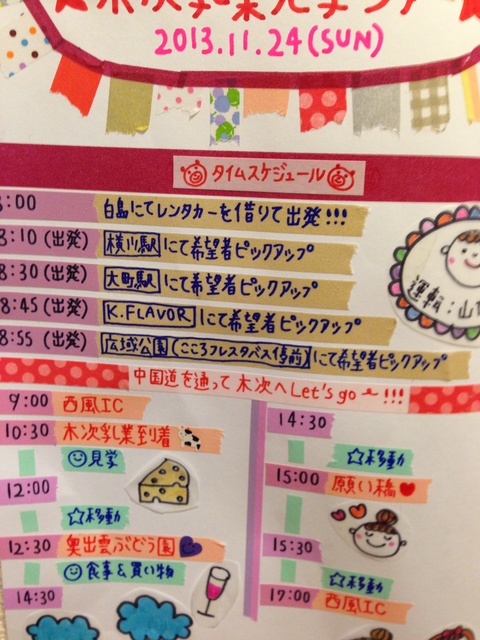 木次乳業見学ツアー
2013.11.24(SUN)
タイムスケジュール
8:00 白島にてレンタカーを借りて出発!!!
8:10 (出発) 横川駅にて希望者ピックアップ
8:30 (出発) 大町駅にて希望者ピックアップ
8:45 (出発) K.FLAVORにて希望者ピックアップ
8:55 (出発) 広域公園(こころフレスタバス停前)にて希望者ピックアップ
運転:山
中国道を通って木次へLet's go~!!!
9:00 西風IC
10:30 木次乳業到着
見学
12:00
☆移動
12:30 奥出雲ぶどう園
食事&買い物
14:30
14:30
☆移動
15:00 願い橋
15:30
☆移動
17:00 西風IC